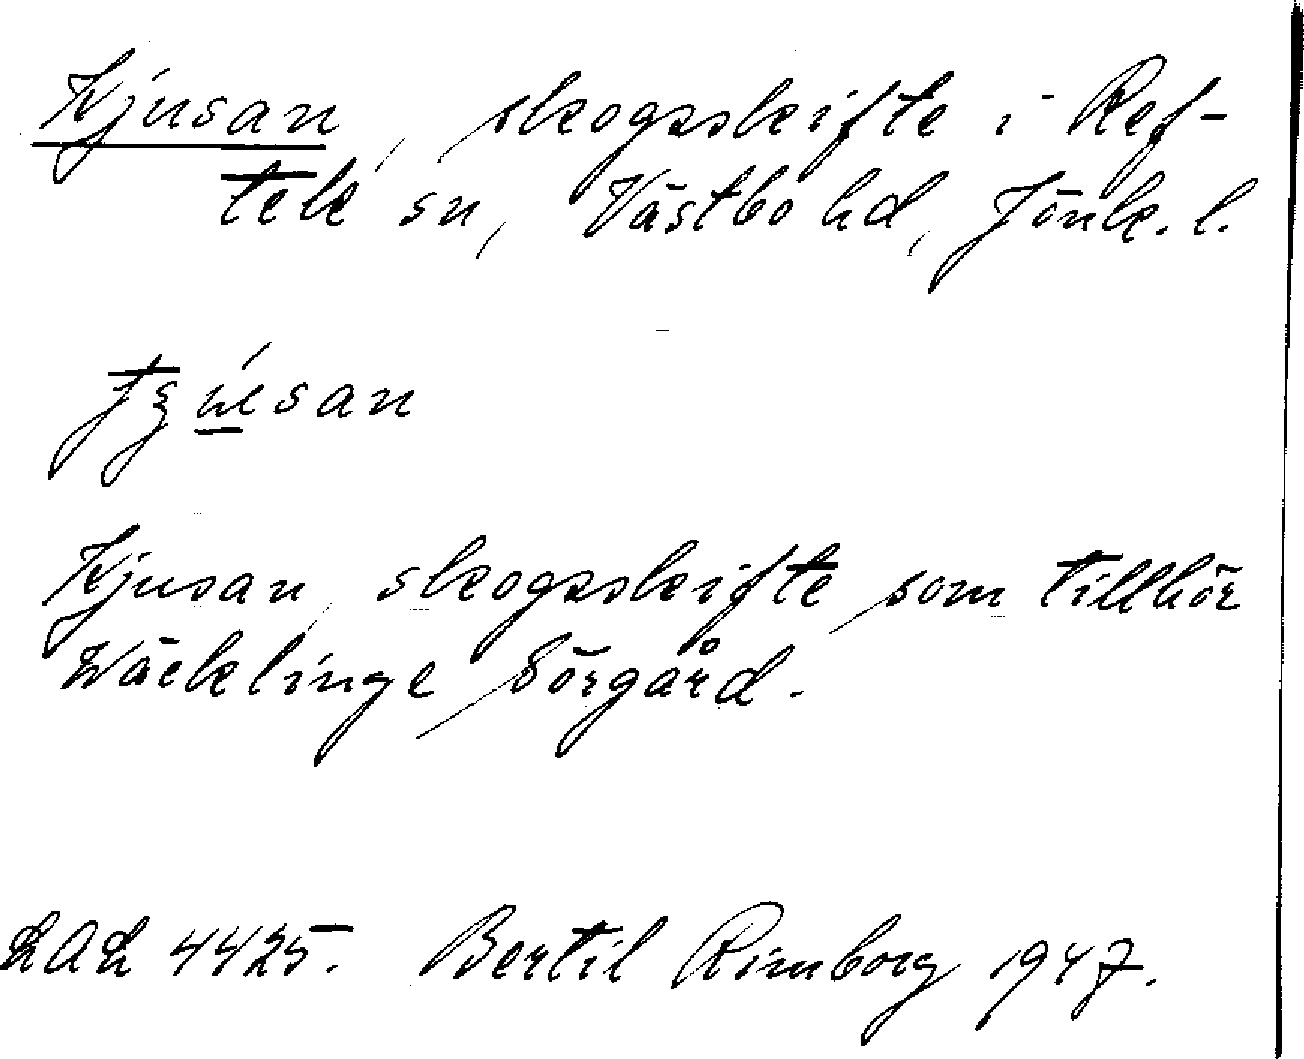 Kjusan, skogsskifte i Ref-
tele sn, Västbo hd, Jönk. l.
Kjusan, skogsskifte som tillhör
Wäcklinge Sörgård.
LAL 4425. Bertil Rimborg 1947.